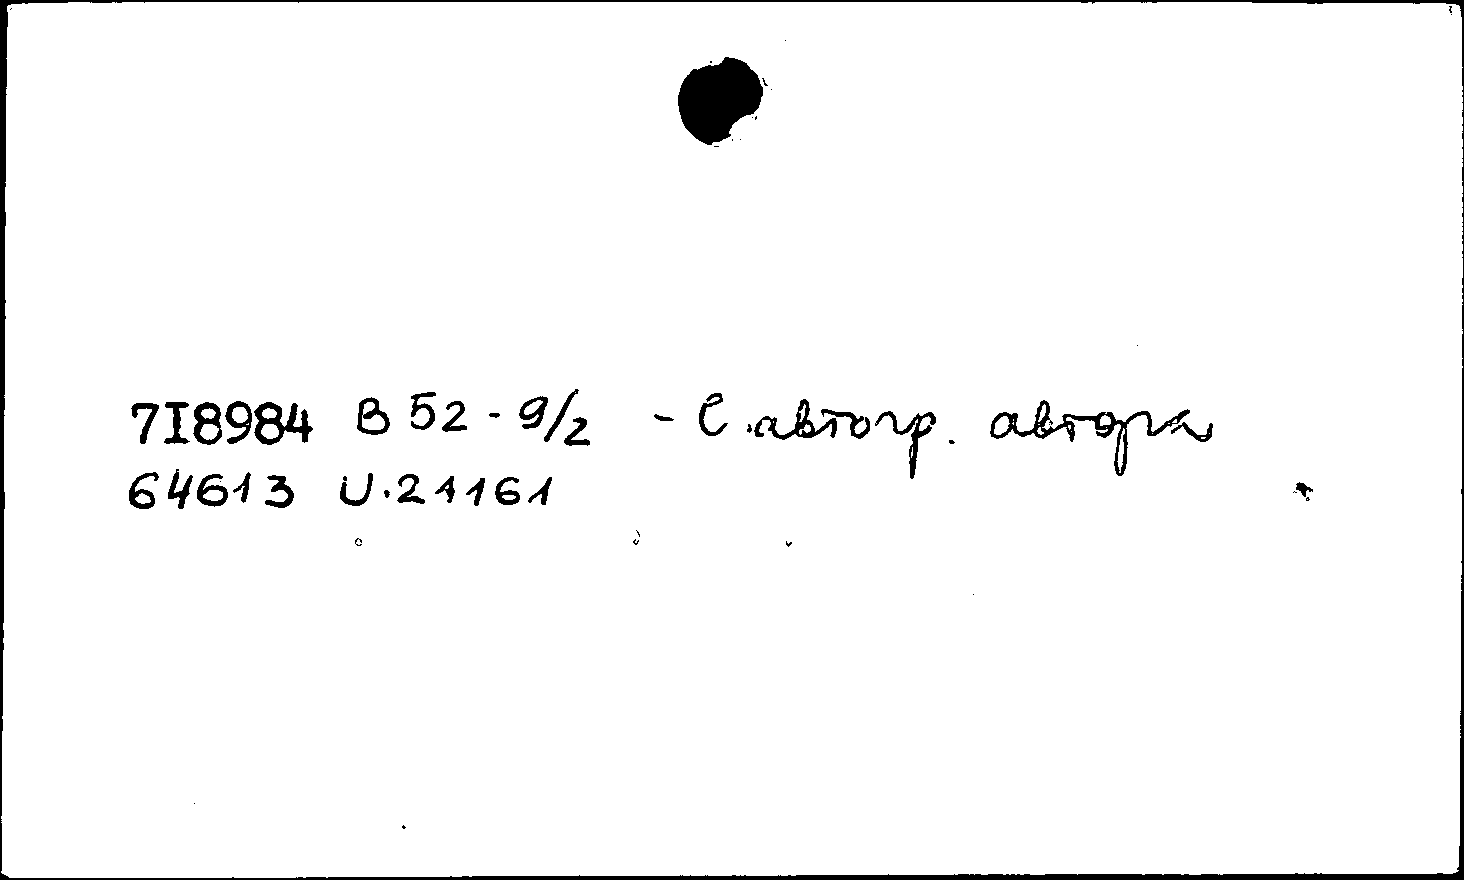 7I8984 В 52 - 9/2 - С. автогр. автора
64613 U.21161